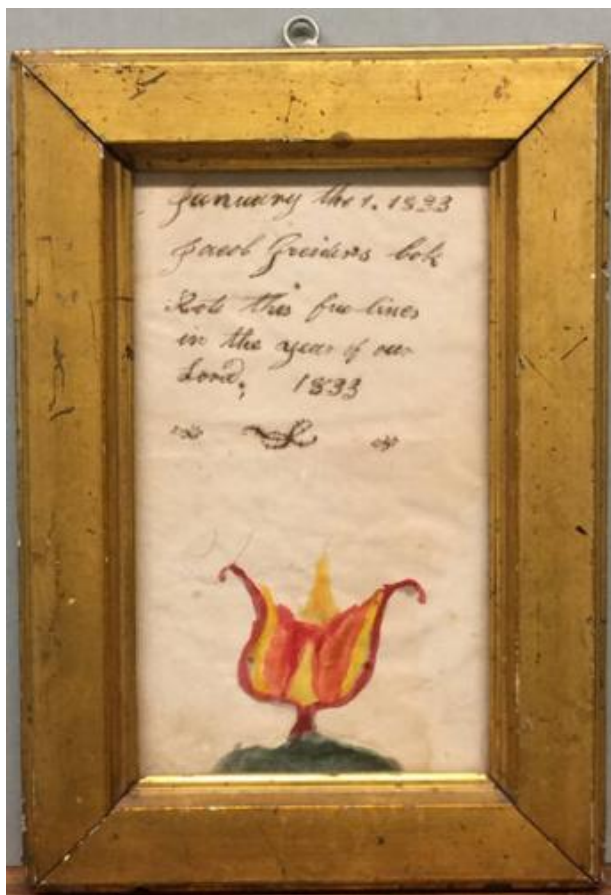 January the 1. 1833
Jacob Greiders bok
Rote this fue lines
in the year of our
Lord, 1833